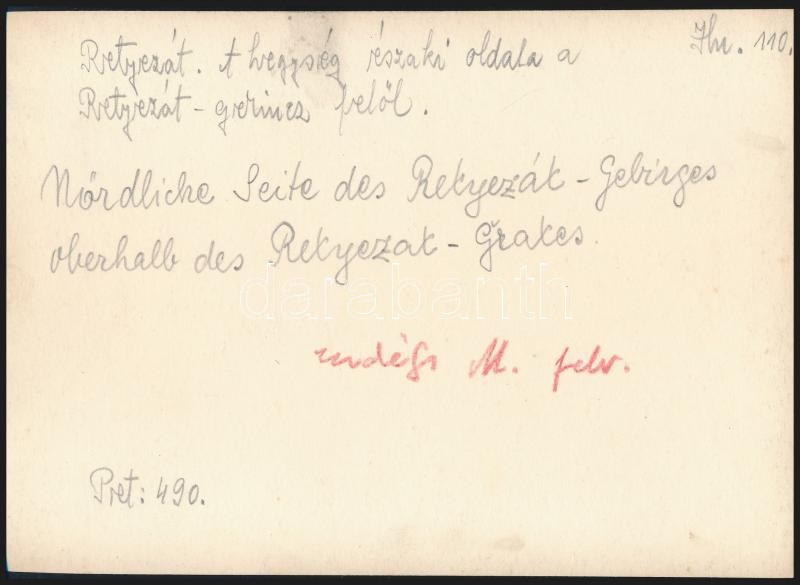 Retyezát. A hegység északi oldala a
Jhr. 110.
Retyezát-gerincz felől.
Nördliche Seite des Retyezát-Gebirges
oberhalb des Retyezat-Grates.
darabanth
M. felv.
Ret: 490.